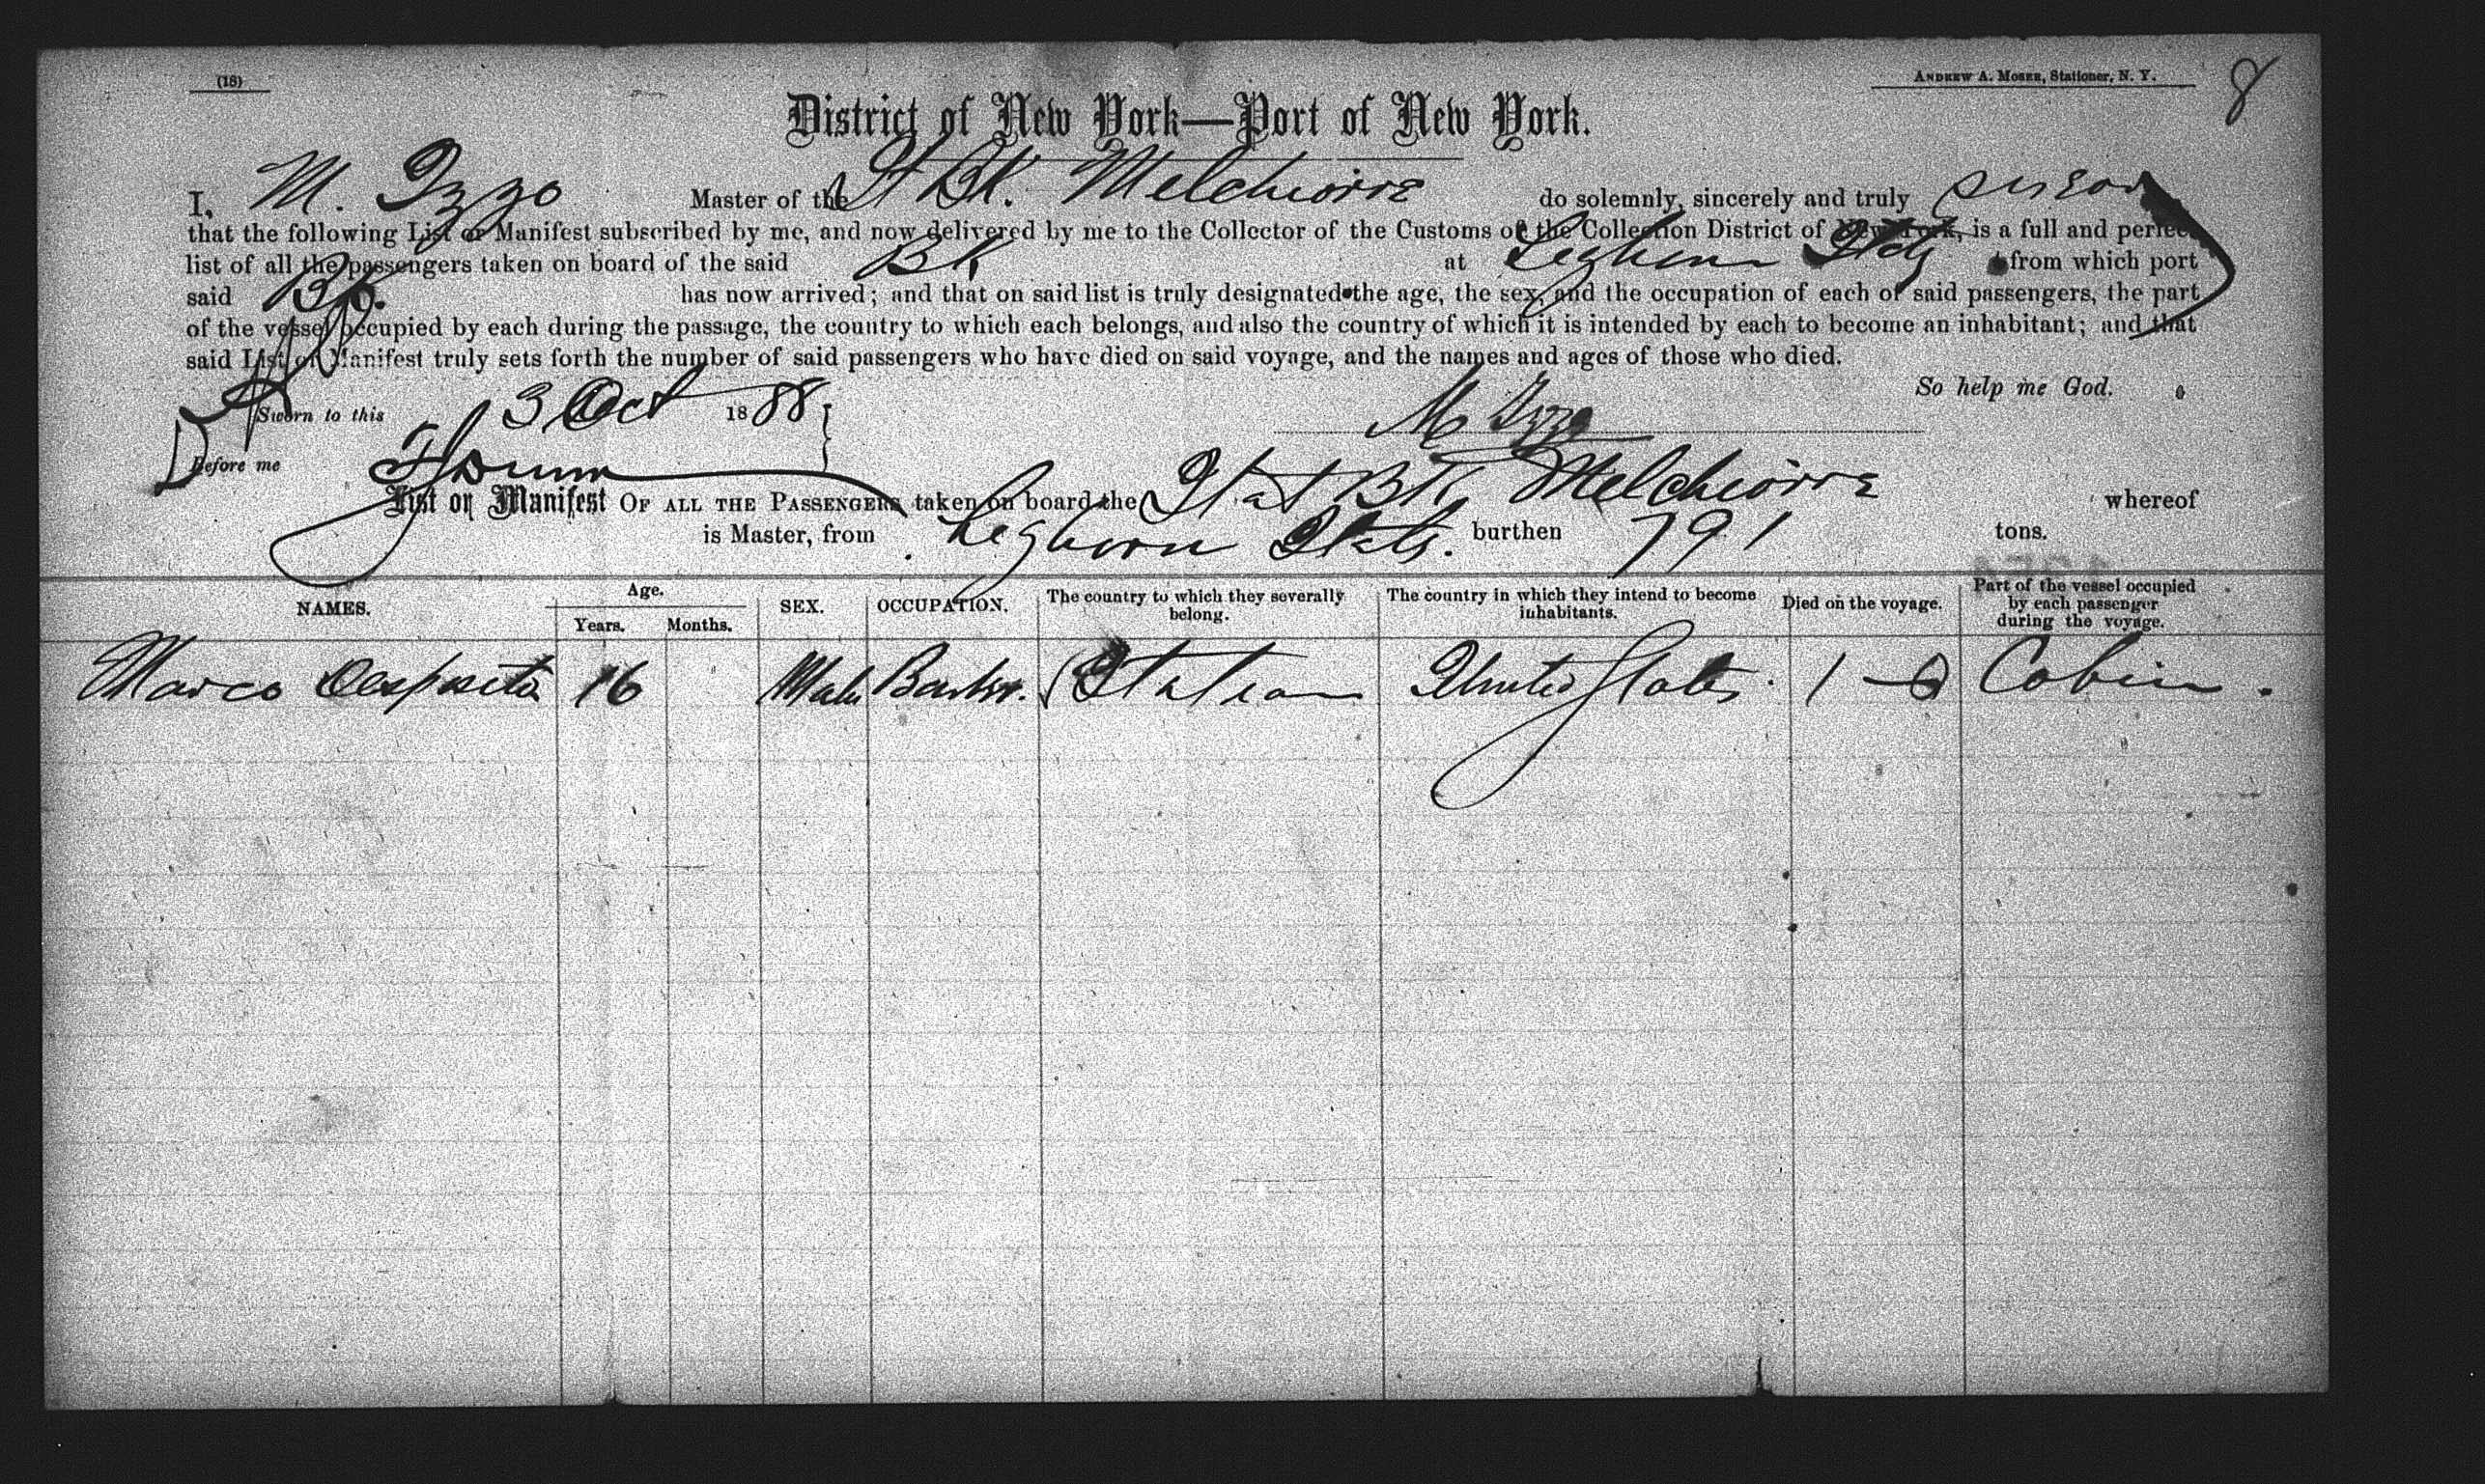 (18)
ANDREW A. MOSER, Stationer, N. Y.
8
District of New York—Port of New York.
I, M. Izzo Master of the It Bk. Melchiorre do solemnly, sincerely and truly swear
that the following List or Manifest subscribed by me, and now delivered by me to the Collector of the Customs of the Collection District of New York, is a full and perfect
list of all the passengers taken on board of the said Bk at Leghorn Italy from which port
said Bk. has now arrived; and that on said list is truly designated the age, the sex, and the occupation of each of said passengers, the part
of the vessel occupied by each during the passage, the country to which each belongs, and also the country of which it is intended by each to become an inhabitant; and that
said List or Manifest truly sets forth the number of said passengers who have died on said voyage, and the names and ages of those who died.
So help me God.
Sworn to this 3 Oct 1888
M Izzo
Before me
List or Manifest OF ALL THE PASSENGERS taken on board the Ital Bk Melchiorre whereof
is Master, from Leghorn Italy. burthen 791 tons.
NAMES. Age. Years. Months. SEX. OCCUPATION. The country to which they severally belong. The country in which they intend to become inhabitants. Died on the voyage. Part of the vessel occupied by each passenger during the voyage.
Marco 16 Male Italian United States. 1 Cabin.